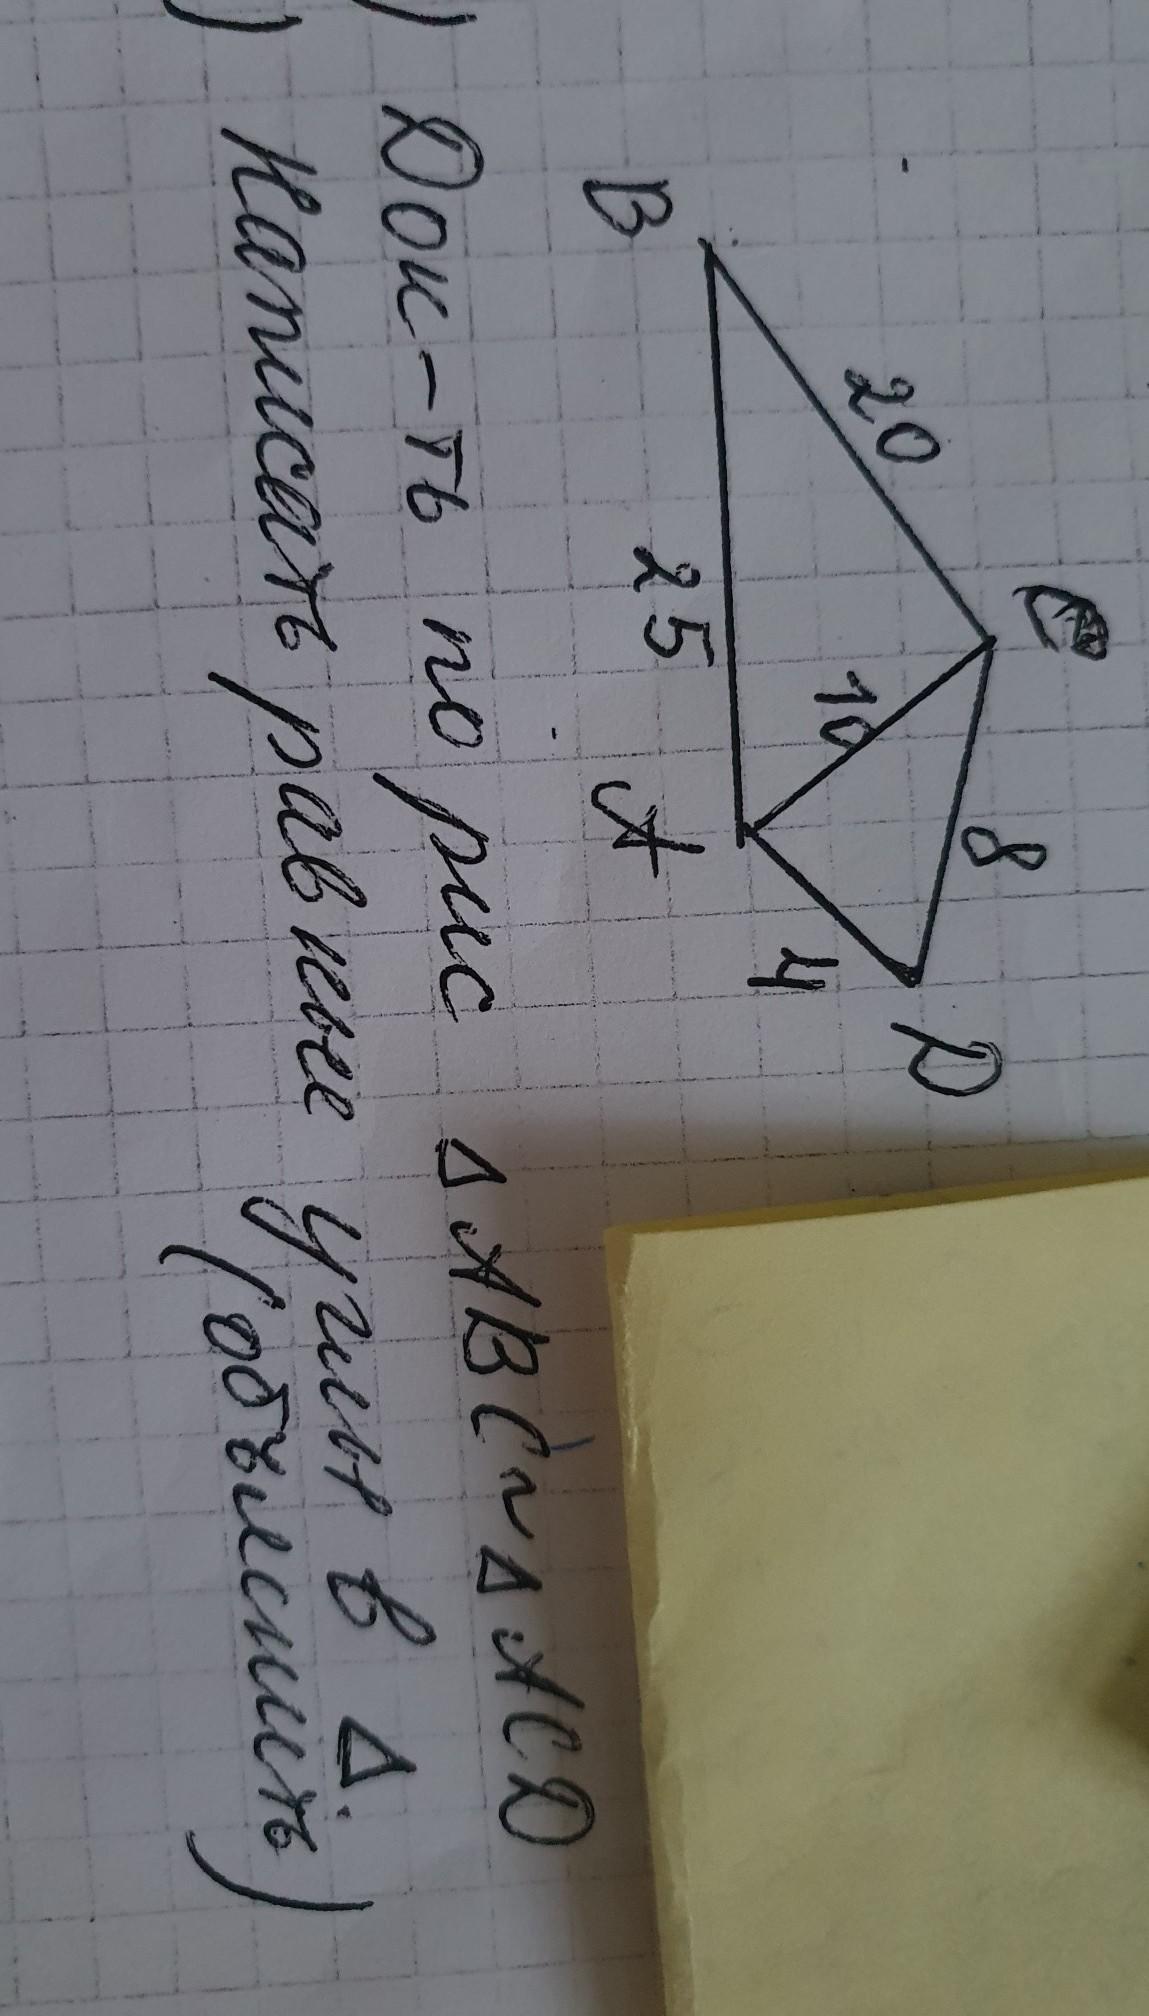 C
20
8
10
D
B
25
A
4
) Док-ть по рис △ABC ~ △ACD
) Написать равные углы в △.
(объяснить)